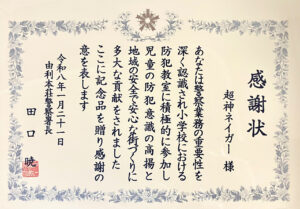 感謝状
超神ネイガー 様
あなたは警察業務の重要性を
深く認識され小学校における
防犯教室に積極的に参加し
児童の防犯意識の高揚と
地域の安全で安心な街づくりに
多大な貢献をされました
ここに記念品を贈り感謝の
意を表します
令和八年一月二十一日
由利本荘警察署長
田口 暁